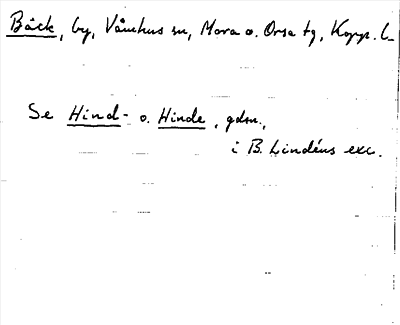 Bäck, by, Våmhus sn, Mora o. Orsa tg, Kopp. l.
Se Hind- o. Hinde, gdsn.,
i B. Lindéns exc.